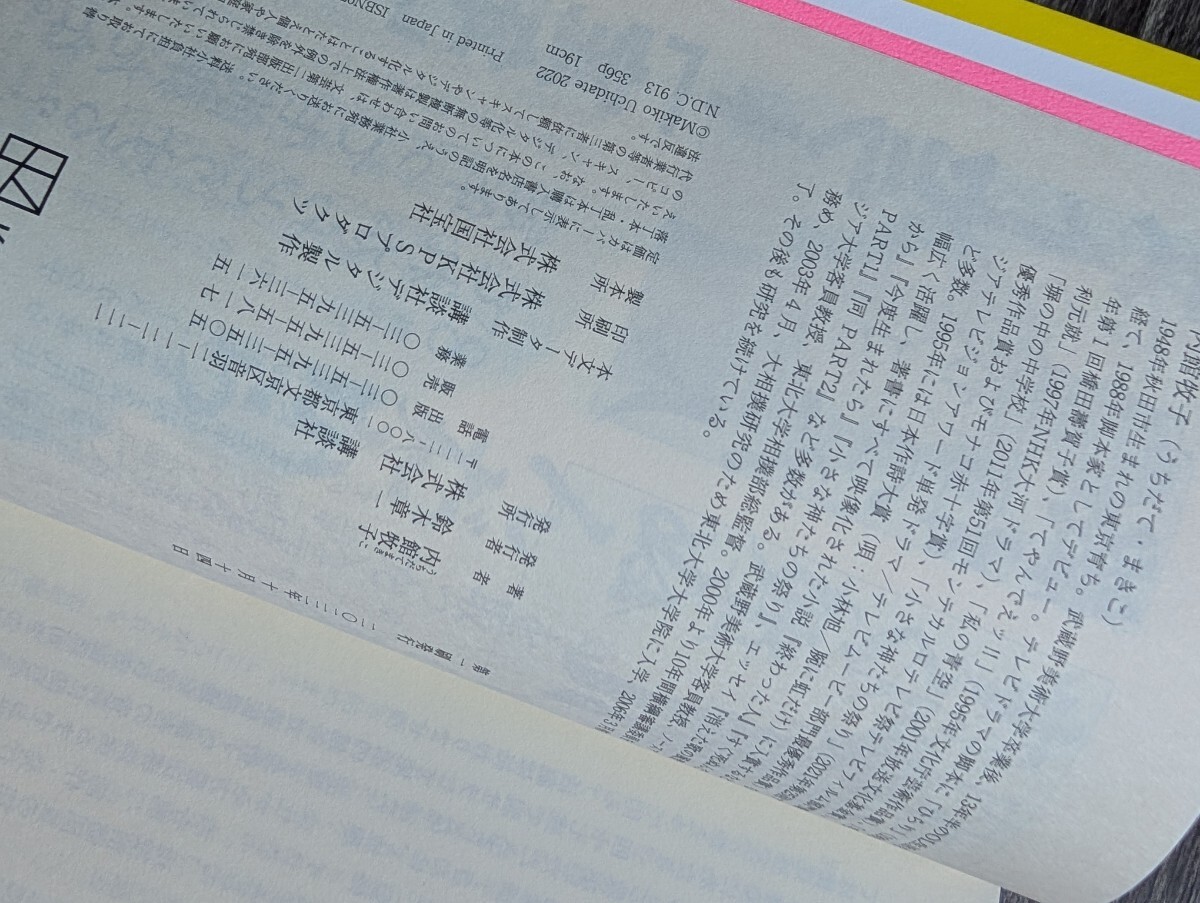 内館牧子（うちだて・まきこ）
1948年秋田市生まれの東京育ち。武蔵野美術大学卒業後、13年半のOL
経て、1988年脚本家としてデビュー。テレビドラマの脚本に「ひらり」
年第1回橋田壽賀子賞）、「てやんでえッ!!」（1995年文化庁芸術作品賞）
利元就」（1997年NHK大河ドラマ）、「私の青空」（2001年放送文化基金
「塀の中の中学校」（2011年第51回モンテカルロテレビ祭テレビフィルム
優秀作品賞およびモナコ赤十字賞）、「小さな神たちの祭り」（2021年
ジアテレビジョンアワード単発ドラマ／テレビムービー部門最優秀作品
ど多数。1995年には日本作詩大賞（唄：小林旭／腕に虹だけ）に入賞する
幅広く活躍し、著書にすべて映像化された小説『終わった人』『すぐ死
から』『今度生まれたら』『小さな神たちの祭り』、エッセイ『消えた
PART1』『同 PART2』など多数がある。武蔵野美術大学客員教授、ノー
ジア大学客員教授、東北大学相撲部総監督。2000年より10年間横綱審議
務め、2003年4月、大相撲研究のため東北大学大学院に入学、2006年3
了。その後も研究を続けている。
二〇二二年十月十四日　第一刷発行
著者　内館牧子
うちだてまきこ
発行者　鈴木章一
発行所　株式会社　講談社
〒一一二-八〇〇一　東京都文京区音羽二-一二-二一
電話　出版　〇三-五三九五-三五〇五
販売　〇三-五三九五-五八一七
業務　〇三-五三九五-三六一五
本文データ制作　講談社デジタル製作
印刷所　株式会社KPSプロダクツ
製本所　株式会社国宝社
定価はカバーに表示してあります。
落丁本・乱丁本は購入書店名を明記のうえ、小社業務宛にお送りください。送料小社負担にてお取り
替えいたします。なお、この本についてのお問い合わせは、文芸第二出版部宛にお願いいたします。本
のコピー、スキャン、デジタル化等の無断複製は著作権法上での例外を除き禁じられています。
代行業者等の第三者に依頼してスキャンやデジタル化することはたとえ個人や家庭
法違反です。
©Makiko Uchidate 2022
N.D.C. 913　356p　19cm
Printed in Japan　ISBN